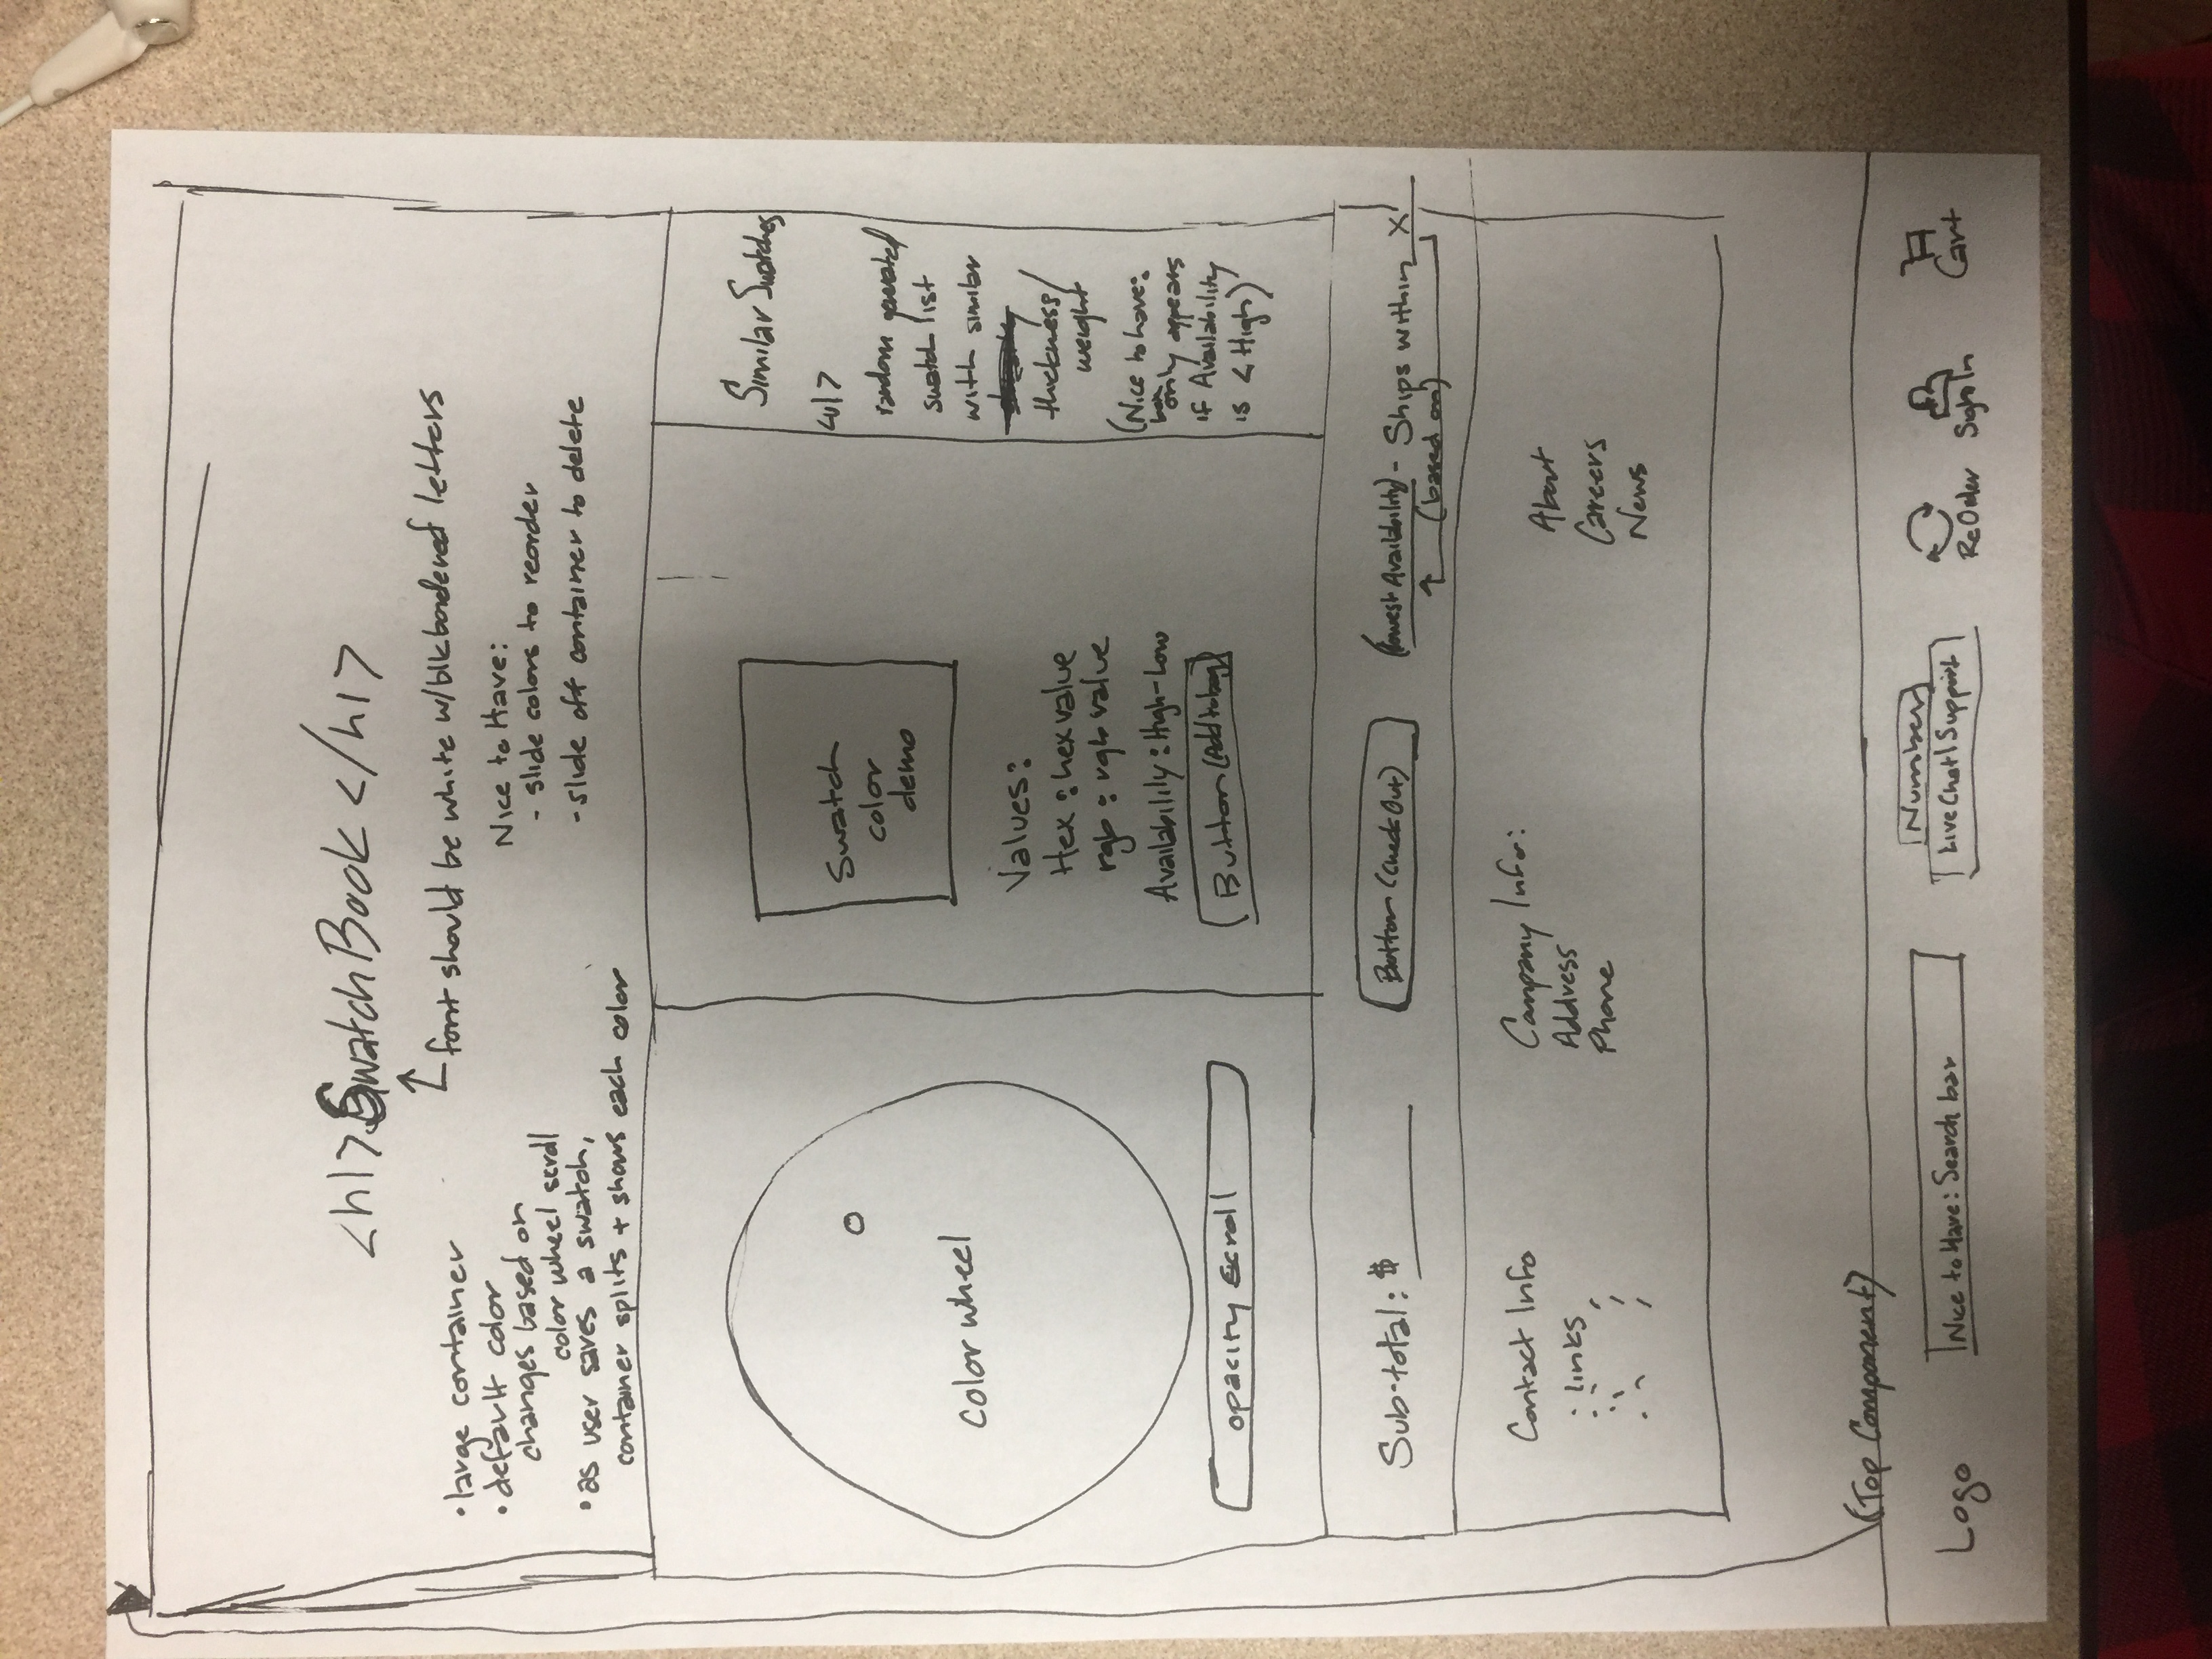 <h1> SwatchBook </h1>
font should be white w/blk bordered letters
• large container
• default color
changes based on
color wheel scroll
• as user saves a swatch,
container splits + shows each color
Nice to Have:
- slide colors to reorder
- slide off container to delete
Color wheel
opacity scroll
Swatch
color
demo
Values:
Hex : hex value
rgb : rgb value
Availability : High-Low
Button (Add to bag)
Similar Swatches
<ul>
random generated
swatch list
with similar
thickness/
weight
(Nice to have:
box
only appears
if Availability
is < High)
Sub-total: $
Button (Check Out)
(lowest Availability) - Ships within X
(based on)
Contact Info
• links
Company Info:
Address
Phone
About
Careers
News
(Top Component)
Logo
Nice to Have: Search bar
Number
Live Chat | Support
ReOrder
Sign In
Cart